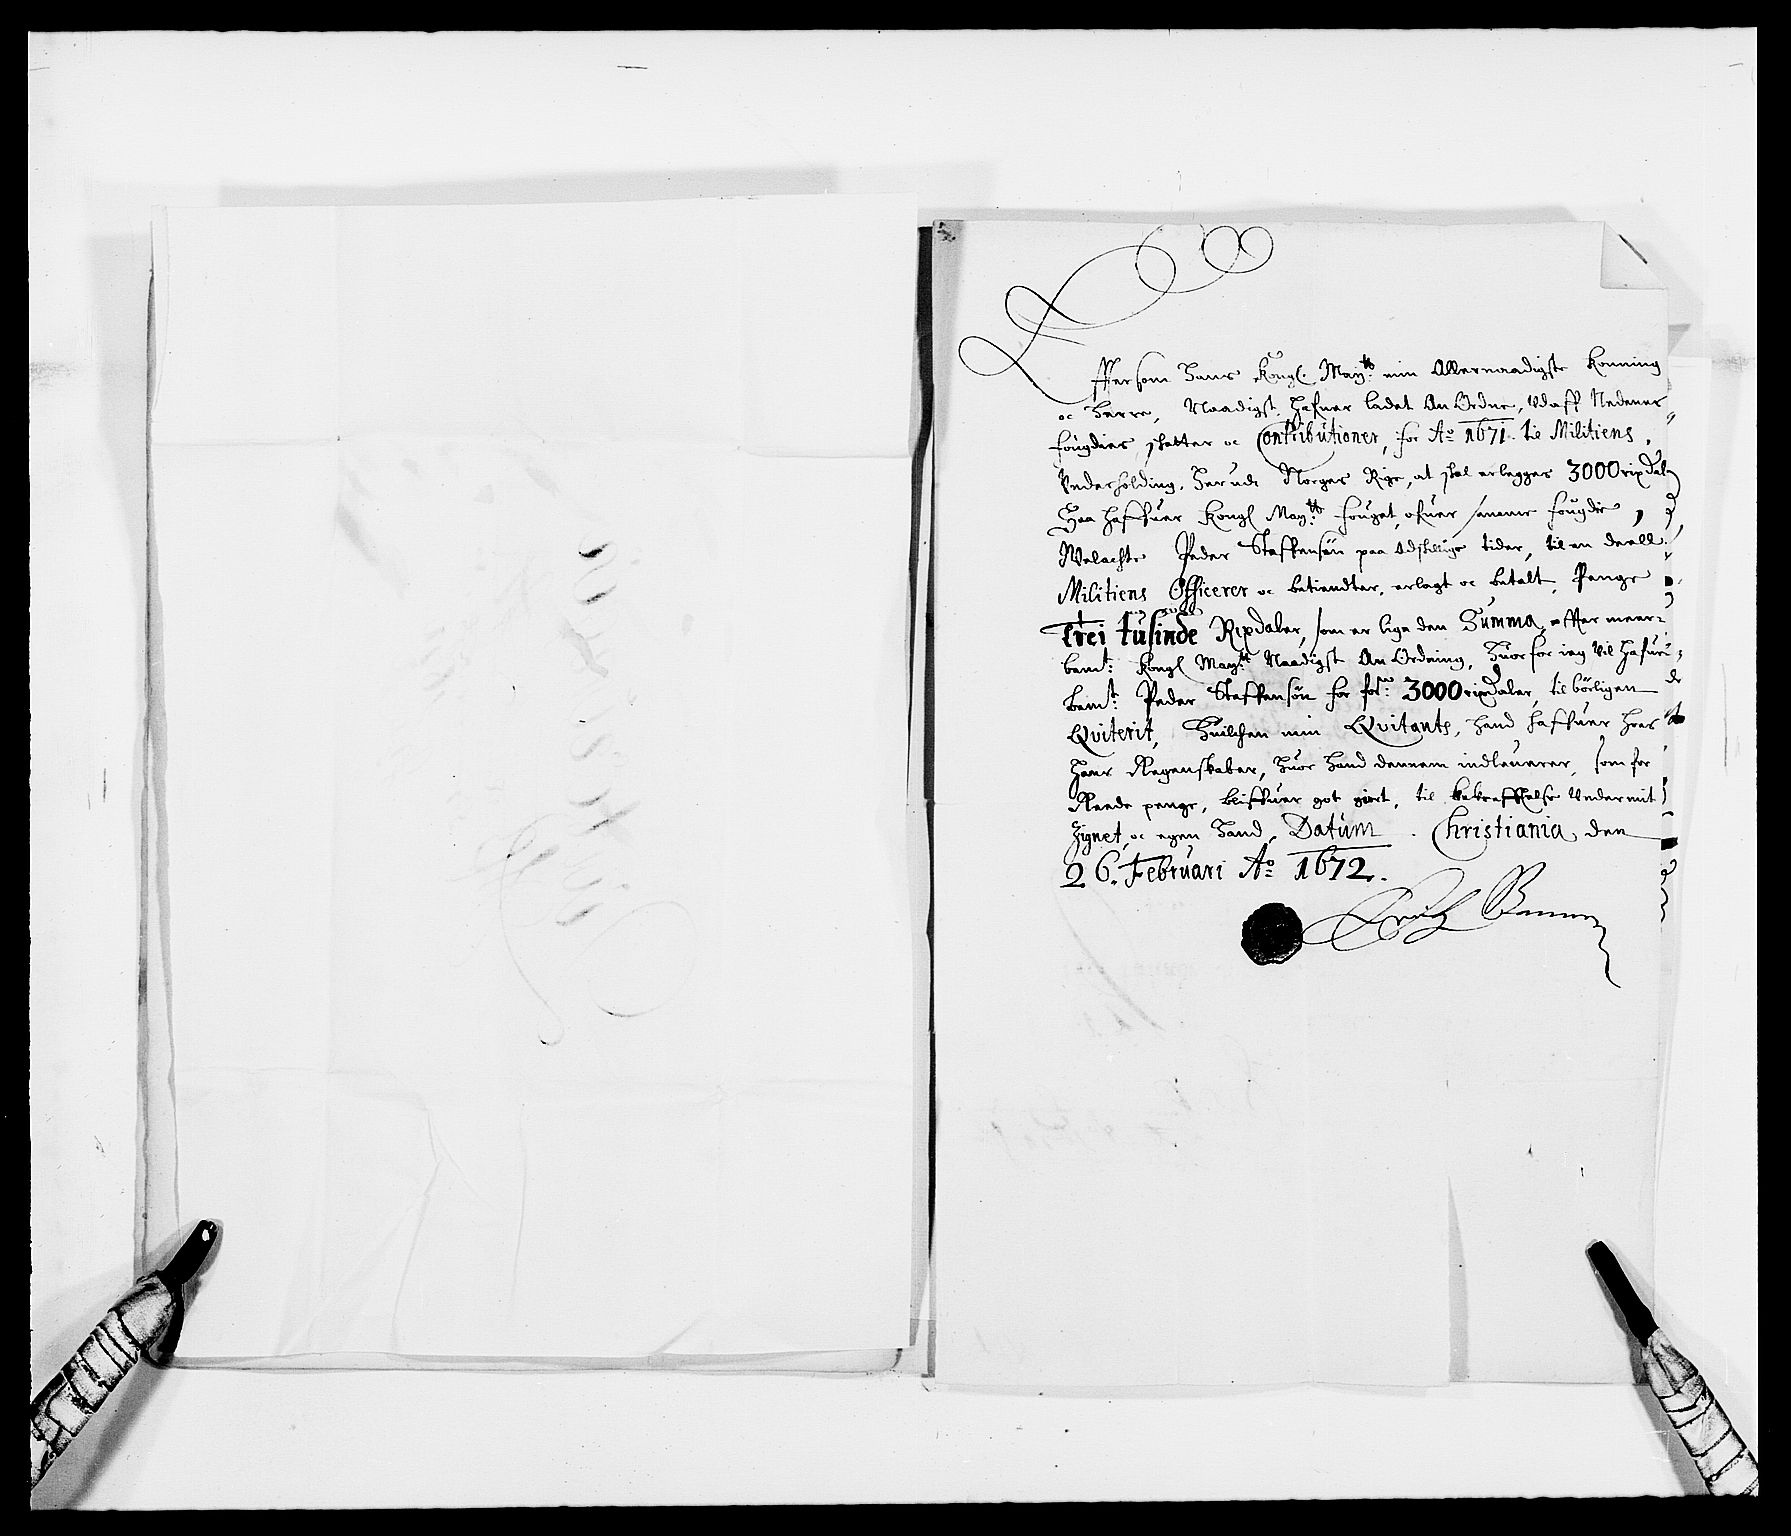 Effersom Hans Kongl. Maytt: min Allernaadigste Konning
oc Herre, Naadigst hafuer ladet An Ordne, Vdaff Nedenes
fougderis skatter oc Contributioner, for Ao 1671. til Militiens
Vnderholding, her udi Norges Rige, at skal erlegges 3000 rixdaler
Saa haffuer Kongl Maytts fouget, ofuer samme fougderie,
Welachte Peder Staffensøn paa Adskillige tider, til en deell
Militiens Officerer oc betiendter, erlagt oc betalt, Penge
Trei tusinde Rixdaler, som er lige den Summa, effter meer-
bemt: Kongl Maytts Naadigst An Ordning, Huorfor ieg vil hafue
bemt: Peder Staffensøn for forne 3000 rixdaler, tilbørligen
Qviterit, Huilchen min Qvitants, hand haffuer hos
hans Regenskaber, huor hand dennem indleuerer, som for
Reede penge, bliffuer got giort, til bekrefftelse Vnder mit
Zignet, oc egen Haand, Datum Christiania den
26. Februari Ao 1672.